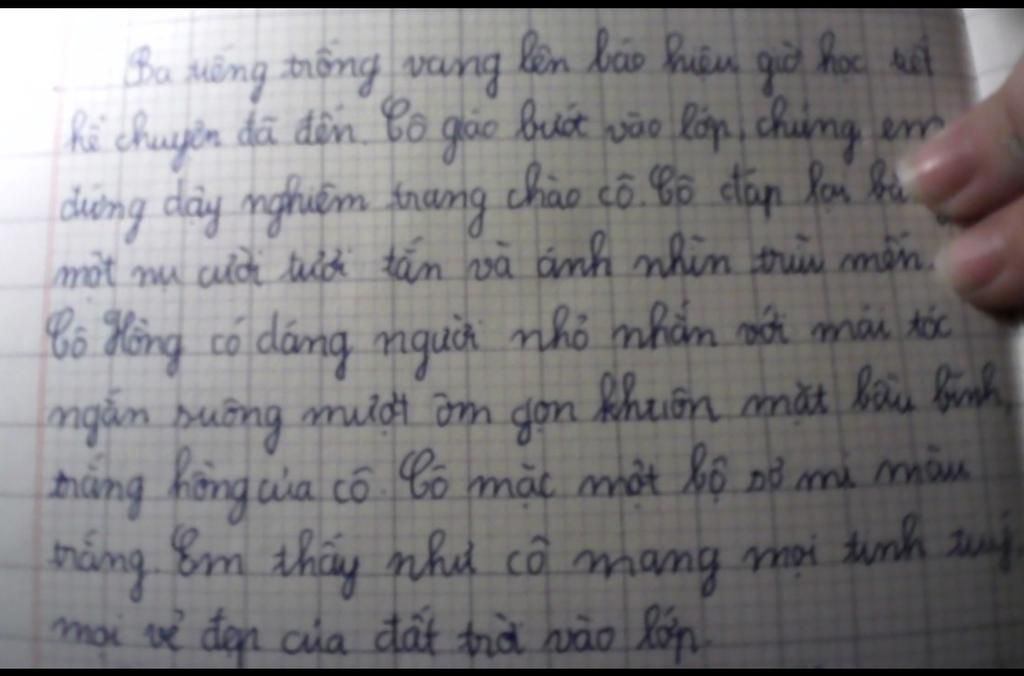 Ba tiếng trống vang lên báo hiệu giờ học tiết
kể chuyện đã đến. Cô giáo bướt vào lớp, chúng em
đứng dậy nghiêm trang chào cô. Cô đáp lại
một nụ cười tươi tắn và ánh nhìn trìu mến.
Cô Hồng có dáng người nhỏ nhắn với mái tóc
ngắn suông mượt ôm gọn khuôn mặt bầu bĩnh,
trắng hồng của cô. Cô mặc một bộ sơ mi màu
trắng. Em thấy như cô mang mọi tinh tuý,
mọi vẻ đẹp của đất trời vào lớp.